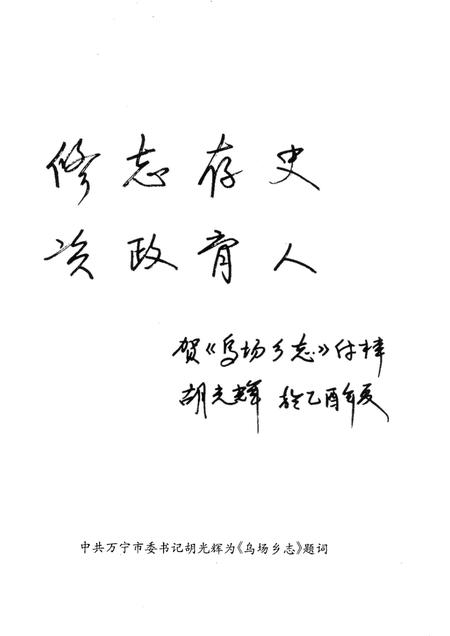 修志存史
资政育人
贺《乌场乡志》付梓
胡光辉 于乙酉年夏
中共万宁市委书记胡光辉为《乌场乡志》题词